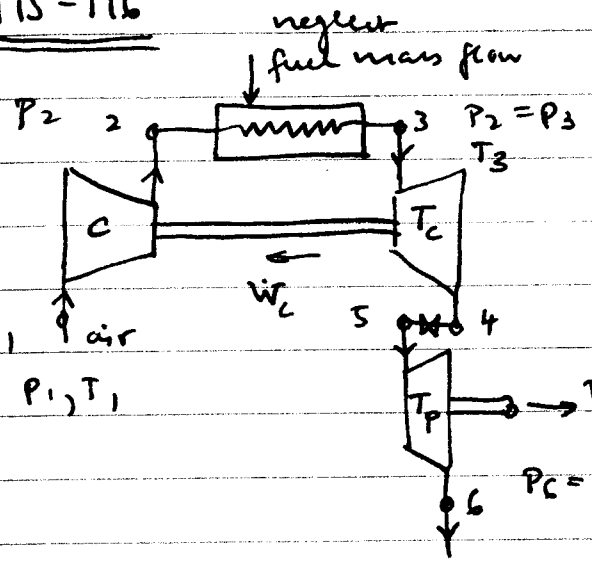 115 - 116
neglect
fuel mass flow
P2 2 3 P2 = P3
T3
C Tc
Ẇc
5 4
1 air
P1, T1
Tp
P6 =
6